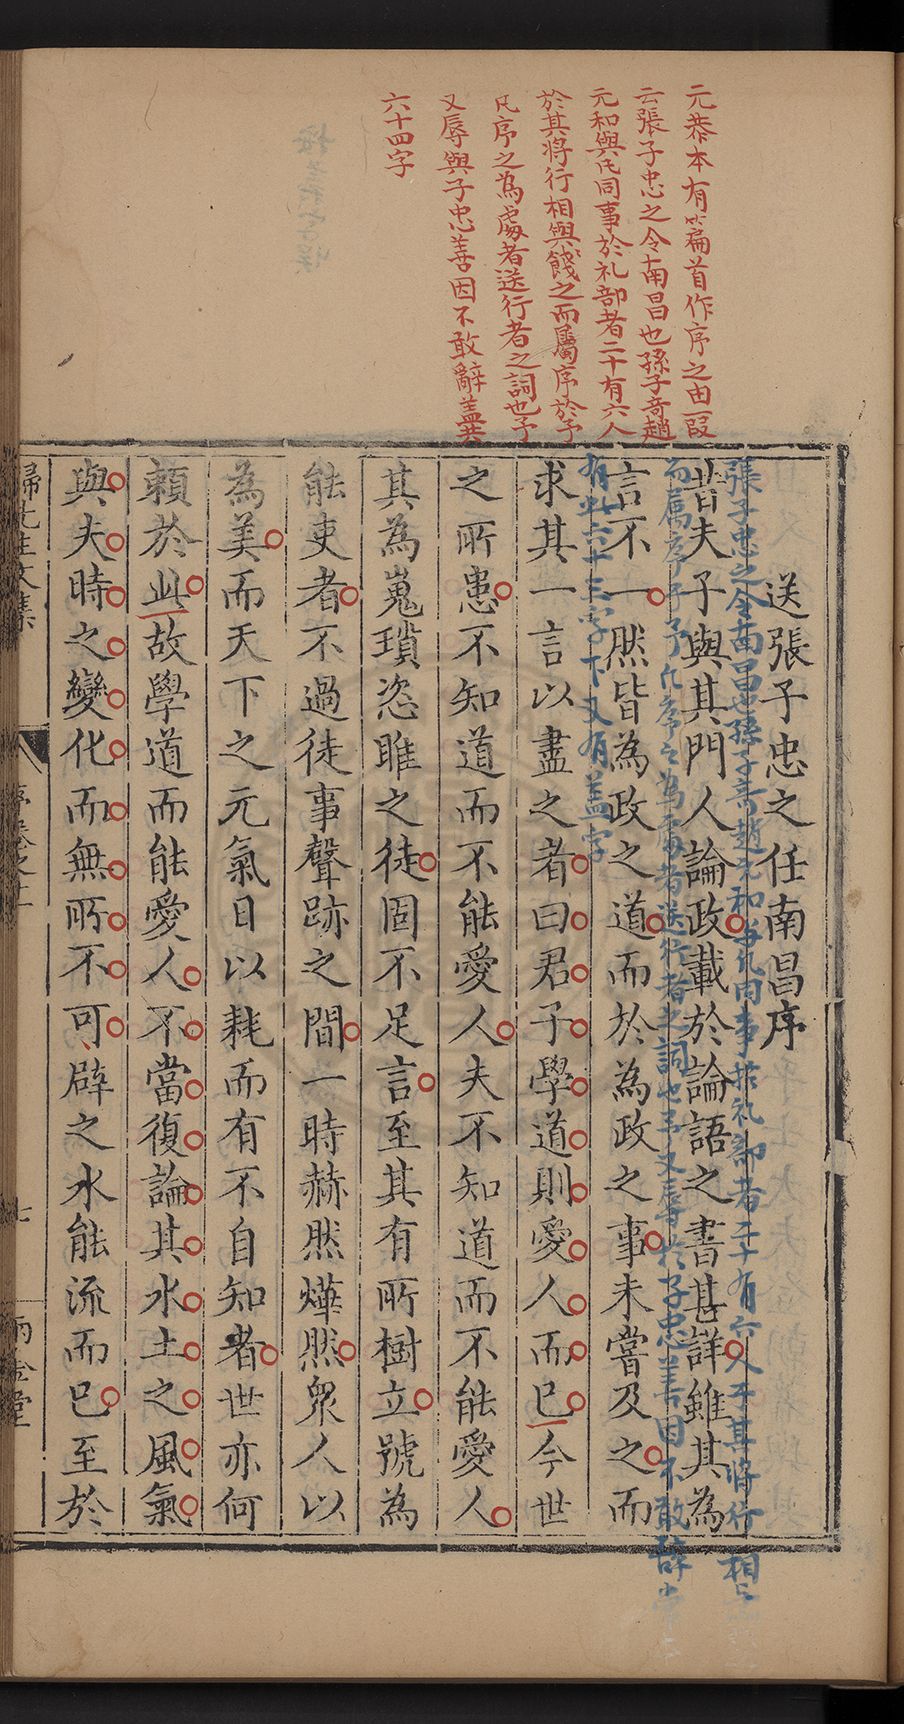 元恭本有篇首作序之由一段
云張子忠之令南昌也孫子竒趙
元和與凡同事於礼部者二十有六人
於其將行相與餞之而屬序於予
凡序之為處者送行者之詞也予
又辱與子忠善因不敢辭蓋共
六十四字
送張子忠之任南昌序
昔夫子與其門人論政載於論語之書甚詳雖其為
言不一然皆為政之道而於為政之事未嘗及之而
求其一言以盡之者曰君子學道則愛人而已今世
之所患不知道而不能愛人夫不知道而不能愛人
其為嵬瑣恣睢之徒固不足言至其有所樹立號為
能吏者不過徒事聲跡之間一時赫然燁然眾人以
為美而天下之元氣日以耗而有不自知者世亦何
賴於此故學道而能愛人不當復論其水土之風氣
與夫時之變化而無所不可辟之水能流而已至於
張子忠之令南昌也孫子竒趙元和與凡同事於礼部者二十有六人于其將行相與
而屬序于予凡序之為處者送行者之詞也予又辱於子忠善因不敢辭
有此六十三字下又有蓋字
歸先生文集